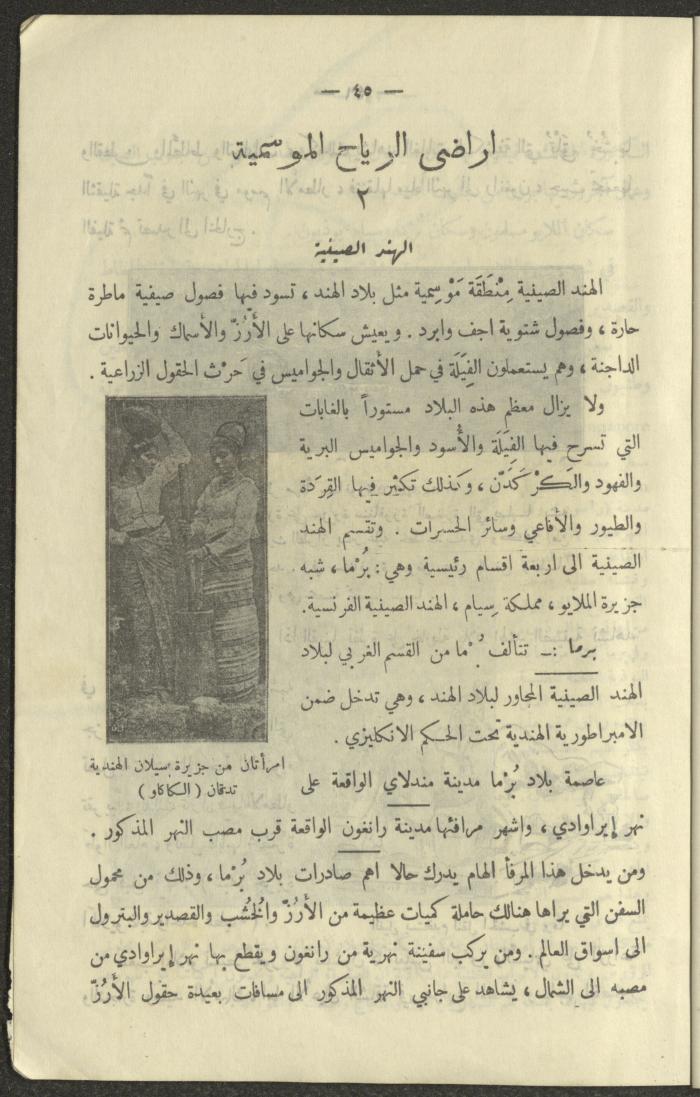 — ٤٥ —
اراضي الرياح الموسمية
٢
الهند الصينية
الهند الصينية مِنْطَقَة مَوْسِمية مثل بلاد الهند ، تسود فيها فصول صيفية ماطرة
حارة ، وفصول شتوية اجف وابرد . ويعيش سكانها على الأَرُزّ والأسماك والحيوانات
الداجنة ، وهم يستعملون الفِيَلَة في حمل الأثقال والجواميس في حَرْث الحقول الزراعية .
ولا يزال معظم هذه البلاد مستوراً بالغابات
التي تسرح فيها الفِيَلَة والأُسود والجواميس البرية
والفهود والكَرْكَدَّن ، وكذلك تكثر فيها القِرَدة
والطيور والأفاعي وسائر الحشرات . وتقسم الهند
الصينية الى اربعة اقسام رئيسية وهي : بُرْما ، شبه
جزيرة الملايو ، مملكة سيام ، الهند الصينية الفرنسية.
برما :— تتألف بُرْما من القسم الغربي لبلاد
الهند الصينية المجاور لبلاد الهند ، وهي تدخل ضمن
الامبراطورية الهندية تحت الحكم الانكليزي .
عاصمة بلاد بُرْما مدينة مندلاي الواقعة على
امرأتان من جزيرة سيلان الهندية
تدقان ( الكاكاو )
نهر إيراوادي ، واشهر مرافئها مدينة رانغون الواقعة قرب مصب النهر المذكور .
ومن يدخل هذا المرفأ الهام يدرك حالا اهم صادرات بلاد بُرْما ، وذلك من محمول
السفن التي يراها هنالك حاملة كميات عظيمة من الأَرُزّ والخُشب والقصدير والبترول
الى اسواق العالم . ومن يركب سفينة نهرية من رانغون ويقطع بها نهر إيراوادي من
مصبه الى الشمال ، يشاهد على جانبي النهر المذكور الى مسافات بعيدة حقول الأَرُزّ